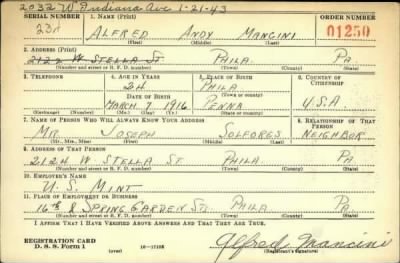 2032 W Indiana Ave 1-21-43
SERIAL NUMBER 1. NAME (Print) ORDER NUMBER
234 ALFRED ANDY MANCINI 01250
(First) (Middle) (Last)
2. ADDRESS (Print)
2122 W STELLA St PHILA PA
(Number and street or R. F. D. number) (Town) (County) (State)
3. TELEPHONE 4. AGE IN YEARS 5. PLACE OF BIRTH 6. COUNTRY OF CITIZENSHIP
24 PHILA
DATE OF BIRTH (Town or county)
MARCH 7 1916 PENNA U.S.A
(Exchange) (Number) (Mo.) (Day) (Yr.) (State or country)
7. NAME OF PERSON WHO WILL ALWAYS KNOW YOUR ADDRESS 8. RELATIONSHIP OF THAT PERSON
MR. JOSEPH SOLFORES NEIGHBOR
(Mr., Mrs., Miss) (First) (Middle) (Last)
9. ADDRESS OF THAT PERSON
2124 W STELLA ST PHILA PA
(Number and street or R. F. D. number) (Town) (County) (State)
10. EMPLOYER'S NAME
U.S. MINT
11. PLACE OF EMPLOYMENT OR BUSINESS
16th & SPRING GARDEN STS. PHILA PA
(Number and street or R. F. D. number) (Town) (County) (State)
I AFFIRM THAT I HAVE VERIFIED ABOVE ANSWERS AND THAT THEY ARE TRUE.
REGISTRATION CARD
D. S. S. Form 1 (over) 16—17105 Alfred Mancini
(Registrant's signature)